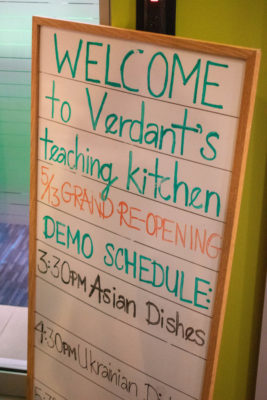 WELCOME
to Verdant's
teaching kitchen
5/13 GRAND RE-OPENING
DEMO SCHEDULE:
3:30PM Asian Dishes
4:30PM Ukrainian